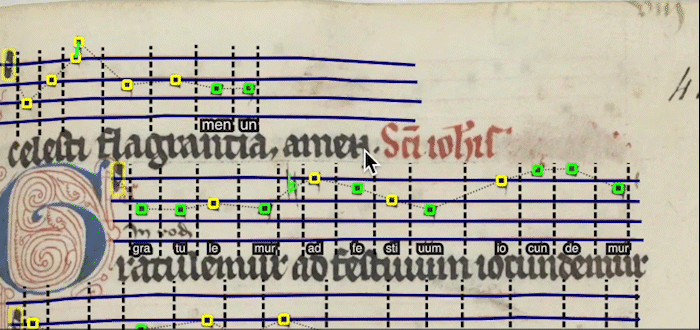 men un
celesti flagrantia, amen. Sci iohis
gra tu le mur ad fe sti uum io cun de mur
Gratulemur ad festiuum iocundemur